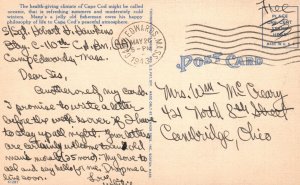 The health-giving climate of Cape Cod might be called
oceanic, that is refreshing summers and moderately cold
winters. Many's a jolly old fisherman owes his happy
philosophy of life to Cape Cod's pampered power.
Free
CAMP EDWARDS, MASS.
MAY 26
PM
1943
POST CARD
Sgt. Robert H. Hawkins
Btry. C-110th C.A. Bn. (AA)
Camp Edwards, Mass.
Dear Sis,
Another one of my cards.
I promise to write a letter
before the week is over if I have
to stay up all night. Your letters
are certainly welcome to the old
man
My love to
all and say hello for me. Drop me a
line soon.
Love,
Mrs. Wm. McCreary
421 North 8th Street
Cambridge, Ohio